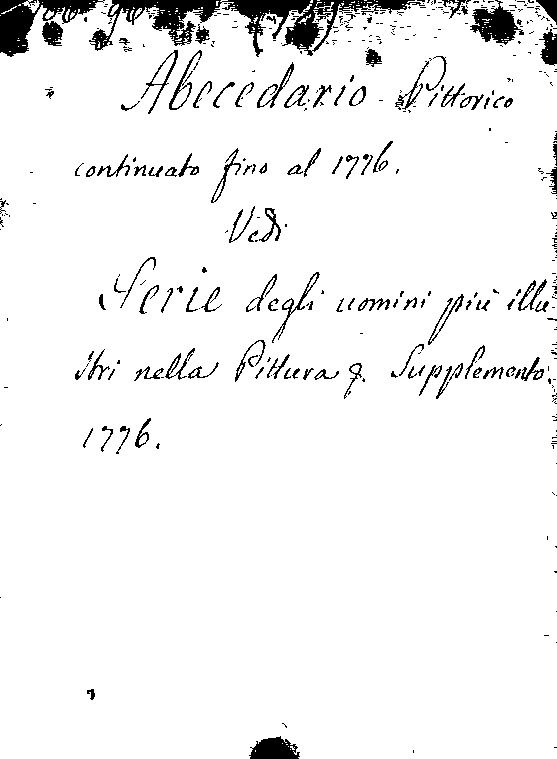 Abecedario Pittorico
continuato fino al 1776.
Vedi
Serie degli uomini più illu
stri nella Pittura &. Supplemento.
1776.